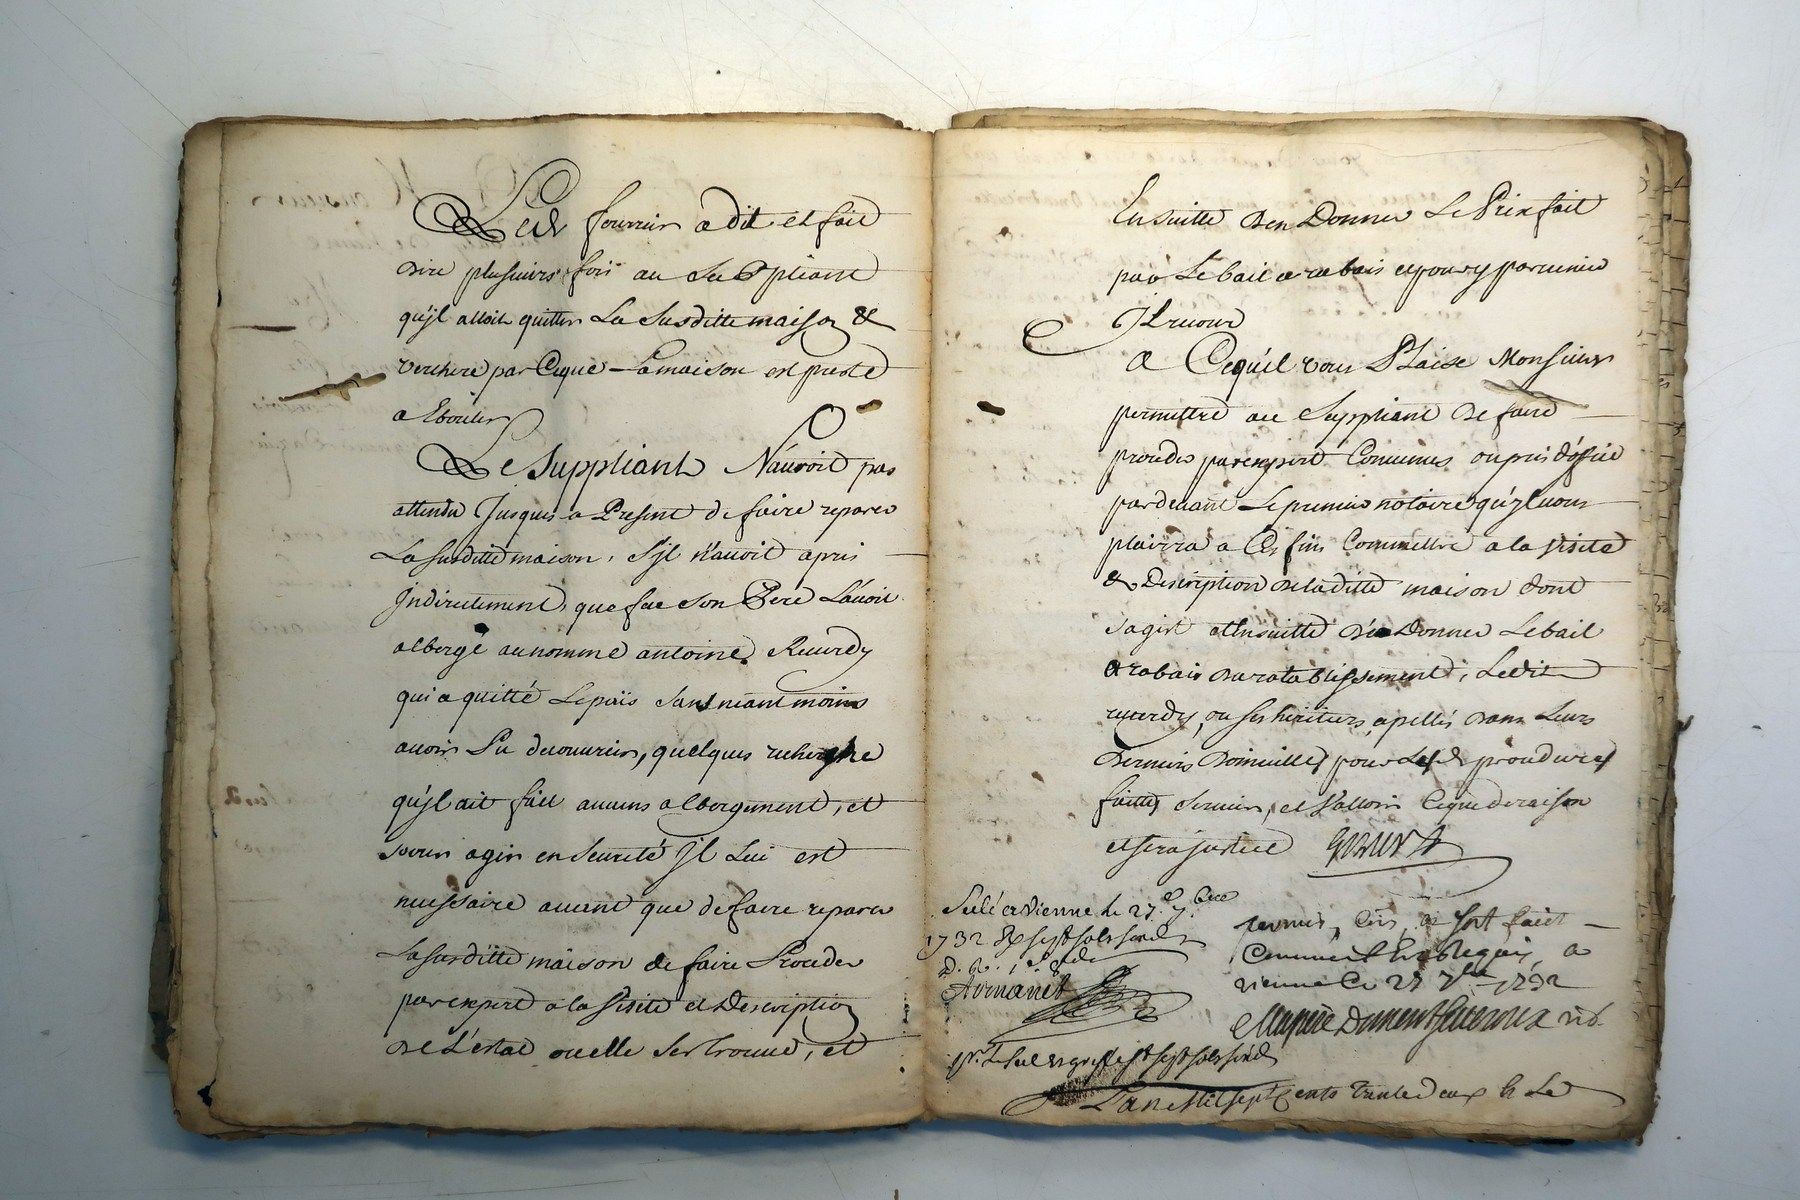 Led fournier a dit et fait
dire plusieurs fois au Suppliant
qu'jl alloit quitter La Susditte maison &
verchere par Ceque La maison est preste
a Ebouler
Le Suppliant N'auroit pas
attendu Jusques a Present de faire reparer
La susditte maison, S'jl n'auoit apris
Indirectement, que feu son Pere L'auoit
albergé au nommé antoine Recurdy
qui a quitté Le païs sans neantmoins
auoir Pu decouurir, quelques recherche
qu'jl ait fait aucuns albergement, et
pour agir en Seureté Jl Lui est
necessaire auant que de faire reparer
La susditte maison de faire Proceder
par expert a la Visite et Description
de L'estat ou elle Se trouue, et
Ensuitte d'en Donner Le Prix fait
par Le bail a rabais et pour y paruenir
Jl recourt
A Cequ'il vous Plaise Monsieur
permettre au Suppliant de faire
proceder par expert Conuenus ou pris d'office
pardeuant Le premier notaire qu'jl vous
plairra a Ces fins Commettre a la visite
& Description de la ditte maison dont
s'agist et Ensuitte d'en Donner Le bail
a rabais du retablissement, Ledit
recurdy, ou ses heritiers, apellés dans Leurs
derniers domicilles pour Lesd procedures
faittes seruir, et Valloir Ceque de raison
et sera justice
Sellé a Vienne le 27e 7bre
1732 Rx sept sols six d
Armanet
permis, soit fait
Commis a
vienne Ce 27 7bre 1732
pr. Le seel & greffe sept sols six d
L'an Mil sept Cents trente deux & Le